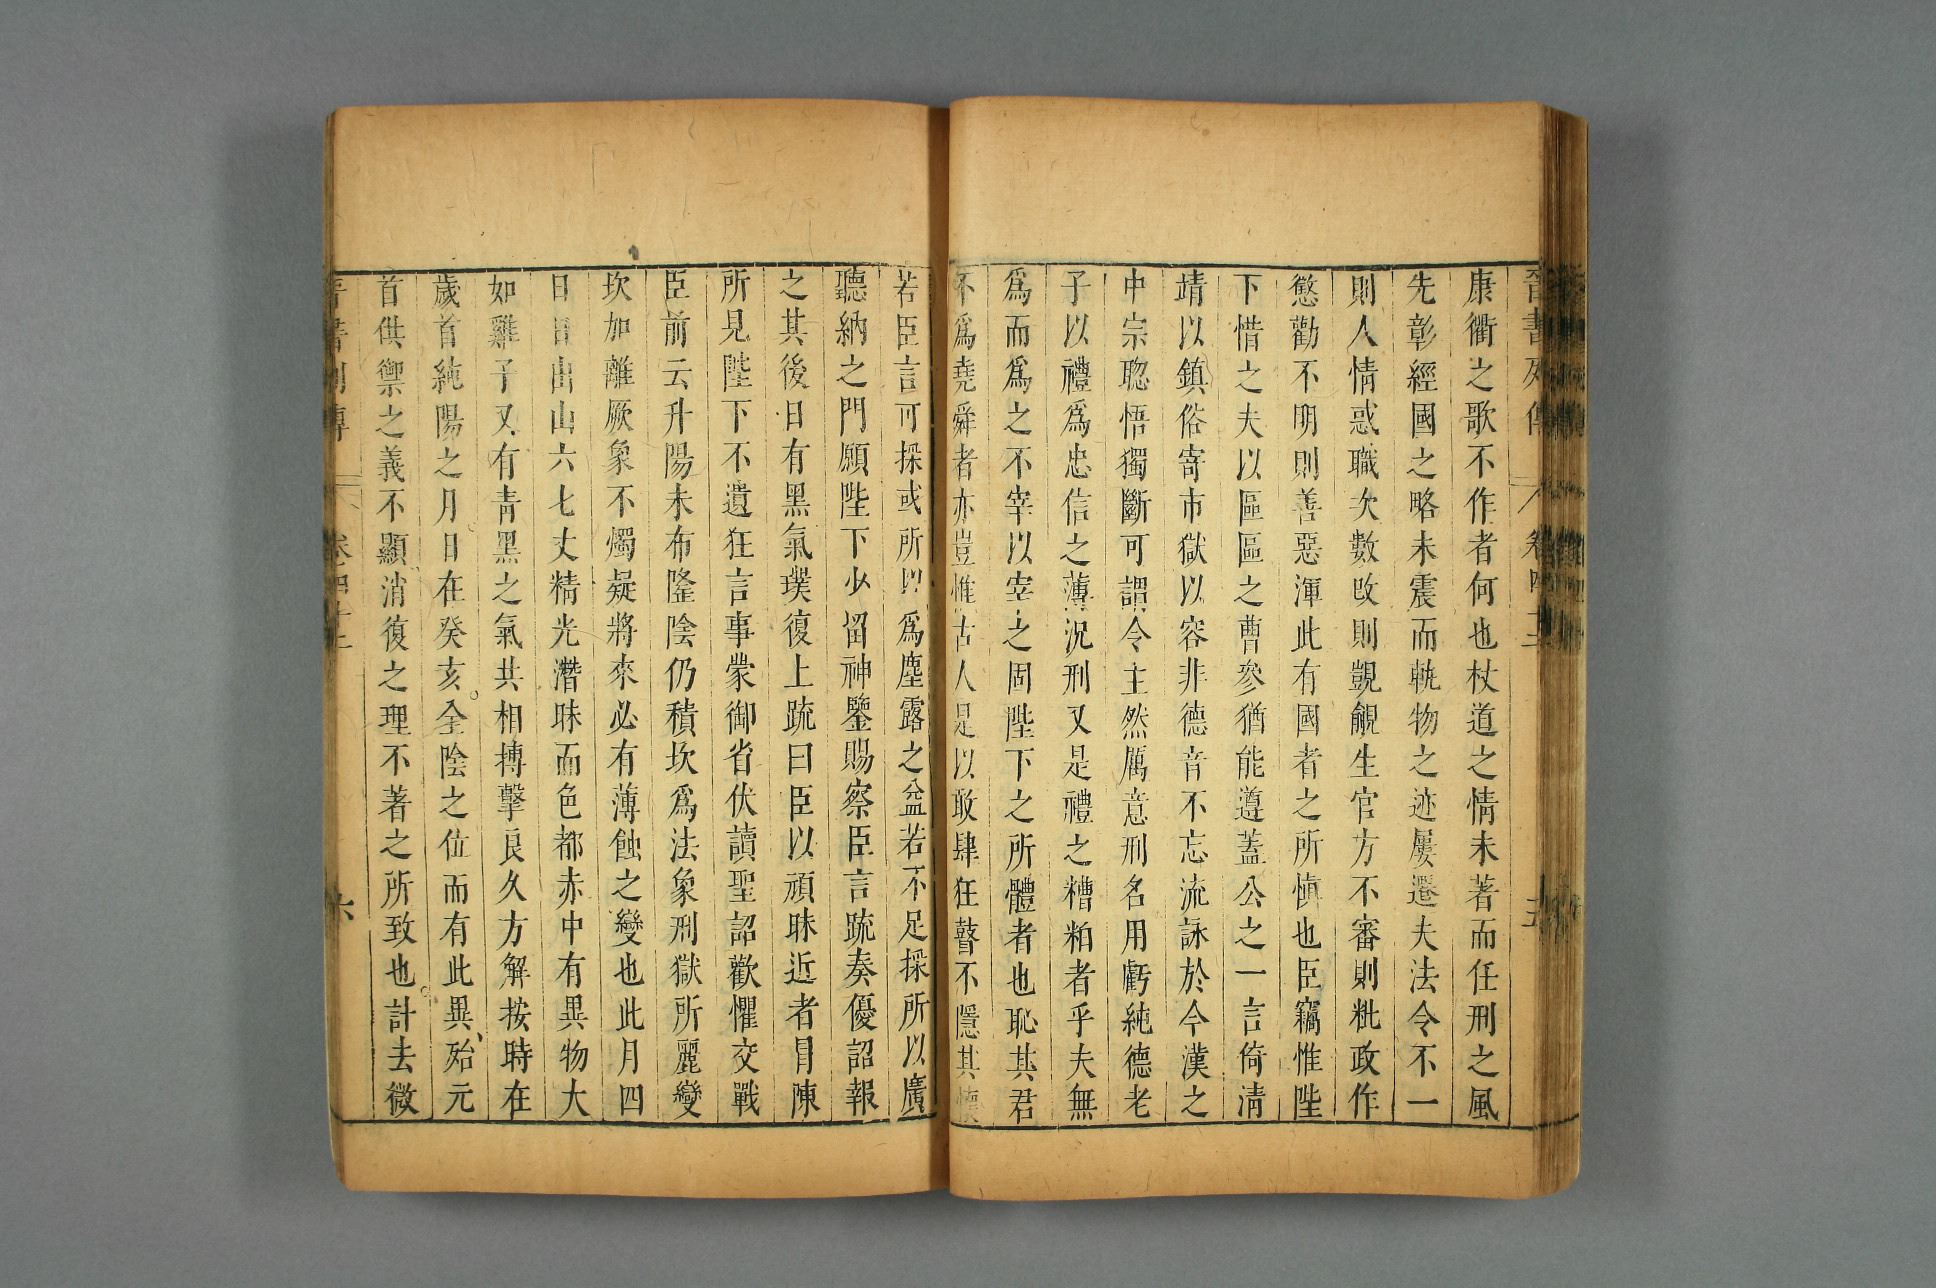 晉書列傳 卷四十二 五
康衢之歌不作者何也杖道之情未著而任刑之風
先彰經國之略未震而軌物之迹屢遷夫法令不一
則人情惑職次數改則覬覦生官方不審則粃政作
懲勸不明則善惡渾此有國者之所愼也臣竊惟陛
下惜之夫以區區之曹參猶能遵蓋公之一言倚淸
靖以鎮俗寄市獄以容非德音不忘流詠於今漢之
中宗聰悟獨斷可謂令主然厲意刑名用虧純德老
子以禮爲忠信之薄況刑又是禮之糟粕者乎夫無
爲而爲之不宰以宰之固陛下之所體者也恥其君
不爲堯舜者亦豈惟古人是以敢肆狂瞽不隱其懷
若臣言可採或所以爲塵露之益若不足採所以廣
聽納之門願陛下少留神鑒賜察臣言疏奏優詔報
之其後日有黑氣璞復上疏曰臣以頑昧近者冒陳
所見陛下不遺狂言事蒙御省伏讀聖詔歡懼交戰
臣前云升陽未布隆陰仍積坎爲法象刑獄所麗變
坎加離厥象不燭疑將來必有薄蝕之變也此月四
日日出山六七丈精光潛昧而色都赤中有異物大
如雞子又有靑黑之氣共相搏擊良久方解按時在
歲首純陽之月日在癸亥全陰之位而有此異殆元
首供禦之義不顯消復之理不著之所致也計去微
晉書列傳 卷四十二 六